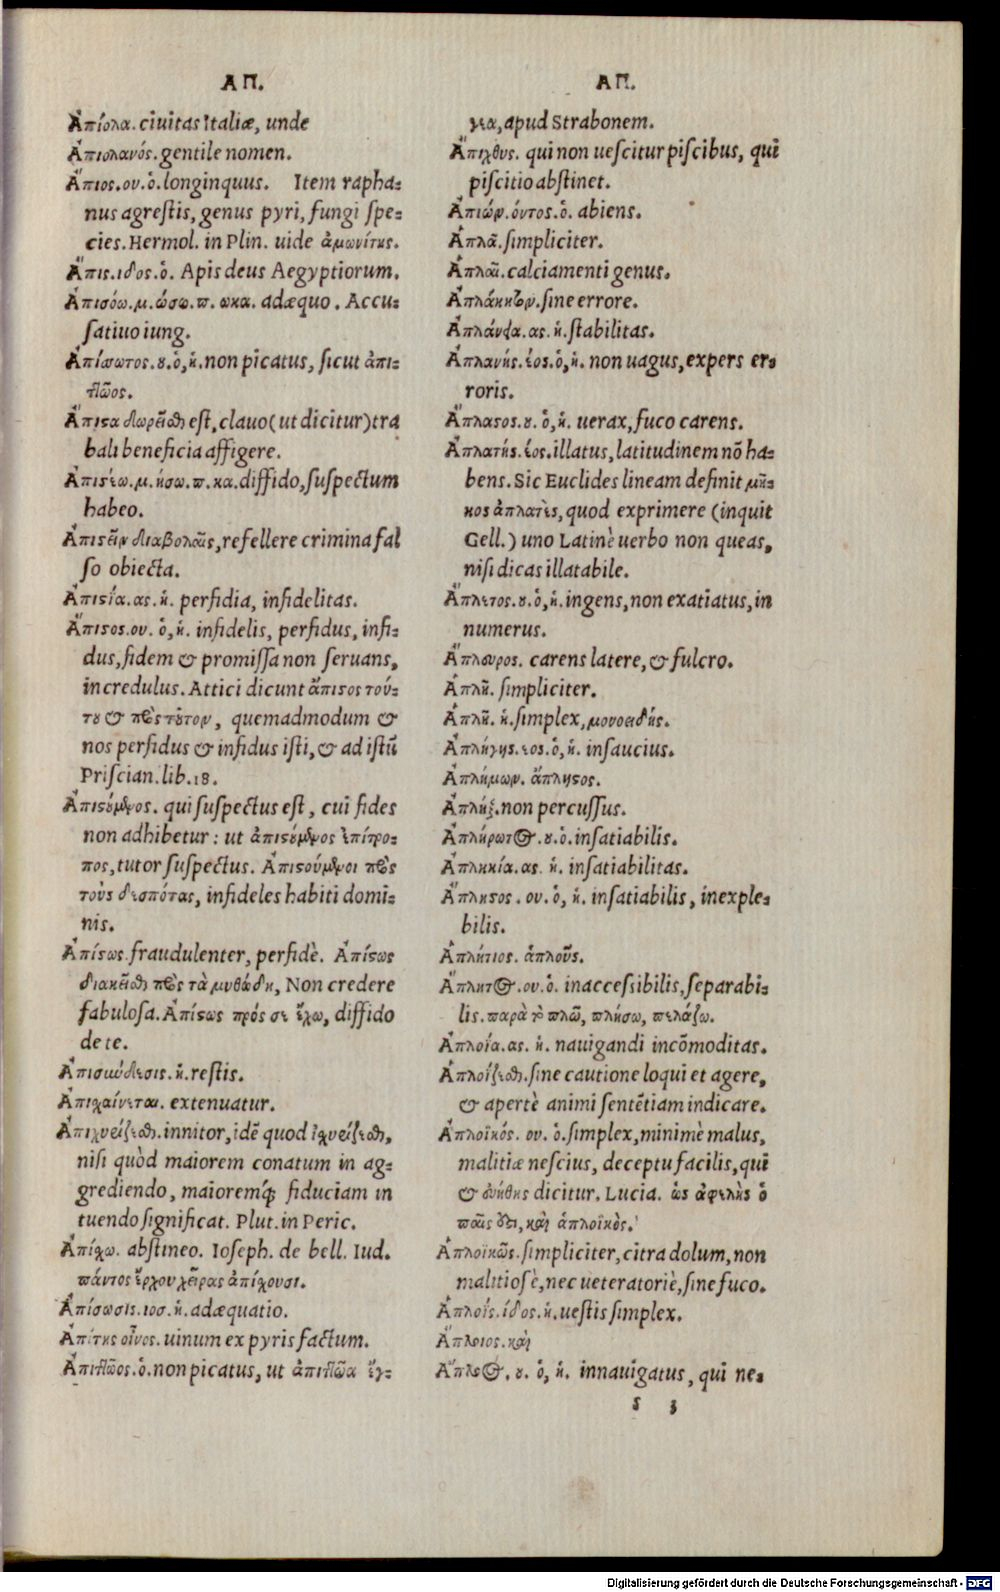 ΑΠ.
Ἀπίολα. ciuitas Italiæ, unde
Ἀπιολανός. gentile nomen.
Ἄπιος.ου.ὁ.longinquus. Item rapha=
nus agrestis, genus pyri, fungi spe=
cies. Hermol. in Plin. uide ἀμωνίτης.
Ἄπις.ιδος.ὁ. Apis deus Aegyptiorum.
Ἀπισόω.μ.ώσω.π.ωκα. adæquo. Accu=
satiuo iung.
Ἀπίσσωτος.ου.ὁ,ἡ.non picatus, sicut ἀπι=
ττῶος.
est, clauo (ut dicitur) tra
bali beneficia affigere.
Ἀπιστέω.μ.ήσω.π.κα.diffido, suspectum
habeo.
Ἀπιστεῖν διαβολαῖς, refellere crimina fal
so obiecta.
Ἀπιστία.ας.ἡ. perfidia, infidelitas.
Ἄπιστος.ου.ὁ,ἡ. infidelis, perfidus, infi=
dus, fidem & promissa non seruans,
incredulus. Attici dicunt ἄπιστος τού=
του & πρὸς τοῦτον, quemadmodum &
nos perfidus & infidus isti, & ad istũ
Priscian. lib. 18.
Ἀπιστούμενος. qui suspectus est, cui fides
non adhibetur: ut ἀπιστούμενος ἐπίτρο=
πος, tutor suspectus. Ἀπιστούμενοι πρὸς
τοὺς δεσπότας, infideles habiti domi=
nis.
Ἀπίστως. fraudulenter, perfidè. Ἀπίστως
διακεῖσθαι πρὸς τὰ μυθώδη, Non credere
fabulosa. Ἀπίστως πρός σε ἔχω, diffido
de te.
Ἀπισύδεσις.ἡ.restis.
Ἀπισχαίνεται. extenuatur.
Ἀπισχυρίζεσθαι. innitor, idẽ quod ἰσχυρίζεσθαι,
nisi quòd maiorem conatum in ag=
grediendo, maioremq́; fiduciam in
tuendo significat. Plut. in Peric.
Ἀπίσχω. abstineo. Ioseph. de bell. Iud.
πάντος ἔργου χεῖρας ἀπίσχουσι.
Ἀπίσωσις.ιοσ.ἡ.adæquatio.
Ἀπίτης οἶνος. uinum ex pyris factum.
Ἀπιττῶος.ὁ.non picatus, ut ἀπιττῶα ἔγ=
ΑΠ.
μια, apud Strabonem.
Ἄπιχθυς. qui non uescitur piscibus, qui
piscitio abstinet.
Ἀπιών.όντος.ὁ. abiens.
Ἁπλᾶ. simpliciter.
Ἁπλαῖ. calciamenti genus.
Ἀπλάκητον. sine errore.
Ἀπλάνεια.ας.ἡ.stabilitas.
Ἀπλανής.έος.ὁ,ἡ. non uagus, expers er=
roris.
Ἄπλαστος.ου. ὁ, ἡ. uerax, fuco carens.
Ἀπλατής.έος. illatus, latitudinem nõ ha=
bens. Sic Euclides lineam definit μῆ=
κος ἀπλατὲς, quod exprimere (inquit
Gell.) uno Latinè uerbo non queas,
nisi dicas illatabile.
Ἄπλετος.ου.ὁ,ἡ. ingens, non exatiatus, in
numerus.
Ἄπλευρος. carens latere, & fulcro.
Ἁπλῆ. simpliciter.
Ἁπλῆ. ἡ.simplex, μονοειδής.
Ἀπλήγης.εος.ὁ,ἡ. insaucius.
Ἀπλήμων. ἄπληστος.
Ἀπλήξ. non percussus.
Ἀπλήρωτος.ου.ὁ. insatiabilis.
Ἀπληστία.ας.ἡ. insatiabilitas.
Ἄπληστος. ου. ὁ, ἡ. insatiabilis, inexple=
bilis.
Ἁπλήτιος. ἁπλοῦς.
Ἄπλητος.ου.ὁ. inaccessibilis, separabi=
lis. παρὰ τὸ πλῶ, πλήσω, πελάζω.
Ἀπλοία.ας. ἡ. nauigandi incõmoditas.
Ἁπλοΐζεσθαι. sine cautione loqui et agere,
& apertè animi sentẽtiam indicare.
Ἁπλοϊκός. ου. ὁ. simplex, minimè malus,
malitiæ nescius, deceptu facilis, qui
& εὐήθης dicitur. Lucia. ὡς ἀφελὴς ὁ
παῖς ὅδε, καὶ ἁπλοϊκὸς.
Ἁπλοϊκῶς. simpliciter, citra dolum, non
malitiosè, nec ueteratoriè, sine fuco.
Ἁπλοίς.ίδος.ἡ.uestis simplex.
Ἄπλοιος. καὶ
Ἄπλοος. ου. ὁ, ἡ. innauigatus, qui ne=
s 3
Digitalisierung gefördert durch die Deutsche Forschungsgemeinschaft - DFG